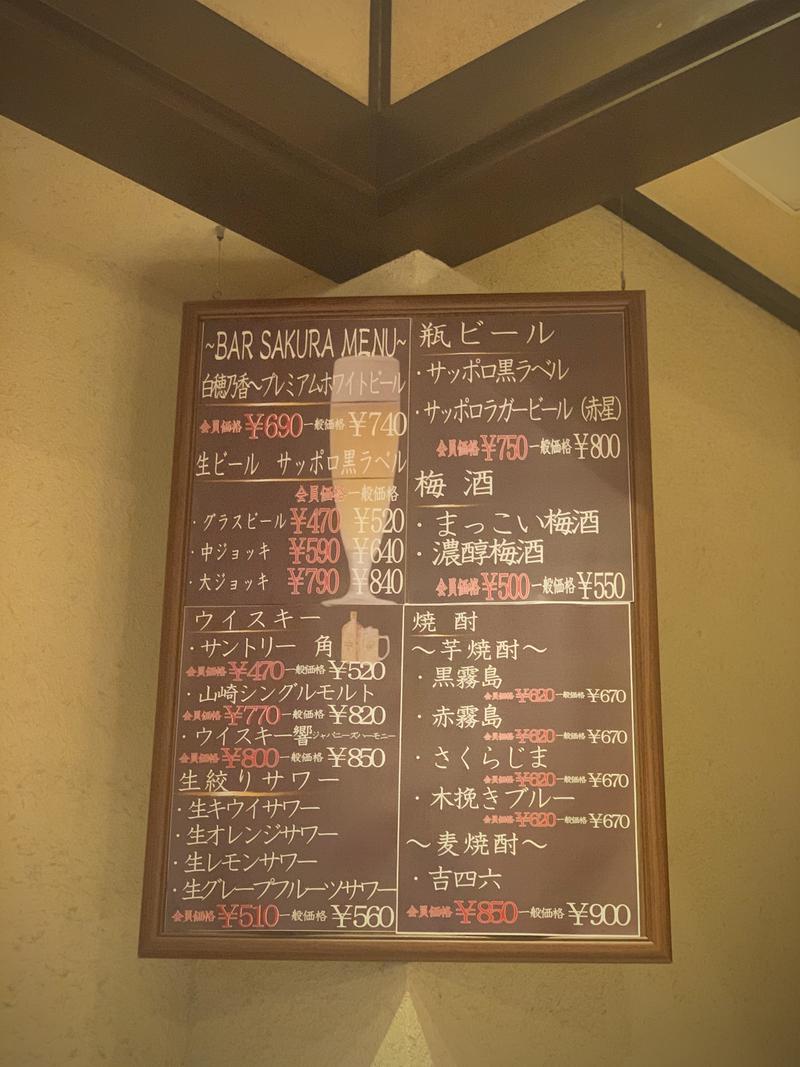 ~BAR SAKURA MENU~
白穂乃香～プレミアムホワイトビール
会員価格￥690一般価格￥740
生ビール　サッポロ黒ラベル
会員価格一般価格
・グラスビール￥470 ￥520
・中ジョッキ ￥590 ￥640
・大ジョッキ ￥790 ￥840
ウイスキー
・サントリー　角
会員価格￥470一般価格￥520
・山崎シングルモルト
会員価格￥770一般価格￥820
・ウイスキー響ジャパニーズハーモニー
会員価格￥800一般価格￥850
生絞りサワー
・生キウイサワー
・生オレンジサワー
・生レモンサワー
・生グレープフルーツサワー
会員価格￥510一般価格￥560
瓶ビール
・サッポロ黒ラベル
・サッポロラガービール（赤星）
会員価格￥750一般価格￥800
梅 酒
・まっこい梅酒
・濃醇梅酒
会員価格￥500一般価格￥550
焼 酎
～芋焼酎～
・黒霧島
会員価格￥620一般価格￥670
・赤霧島
会員価格￥620一般価格￥670
・さくらじま
会員価格￥620一般価格￥670
・木挽きブルー
会員価格￥620一般価格￥670
～麦焼酎～
・吉四六
会員価格￥850一般価格￥900